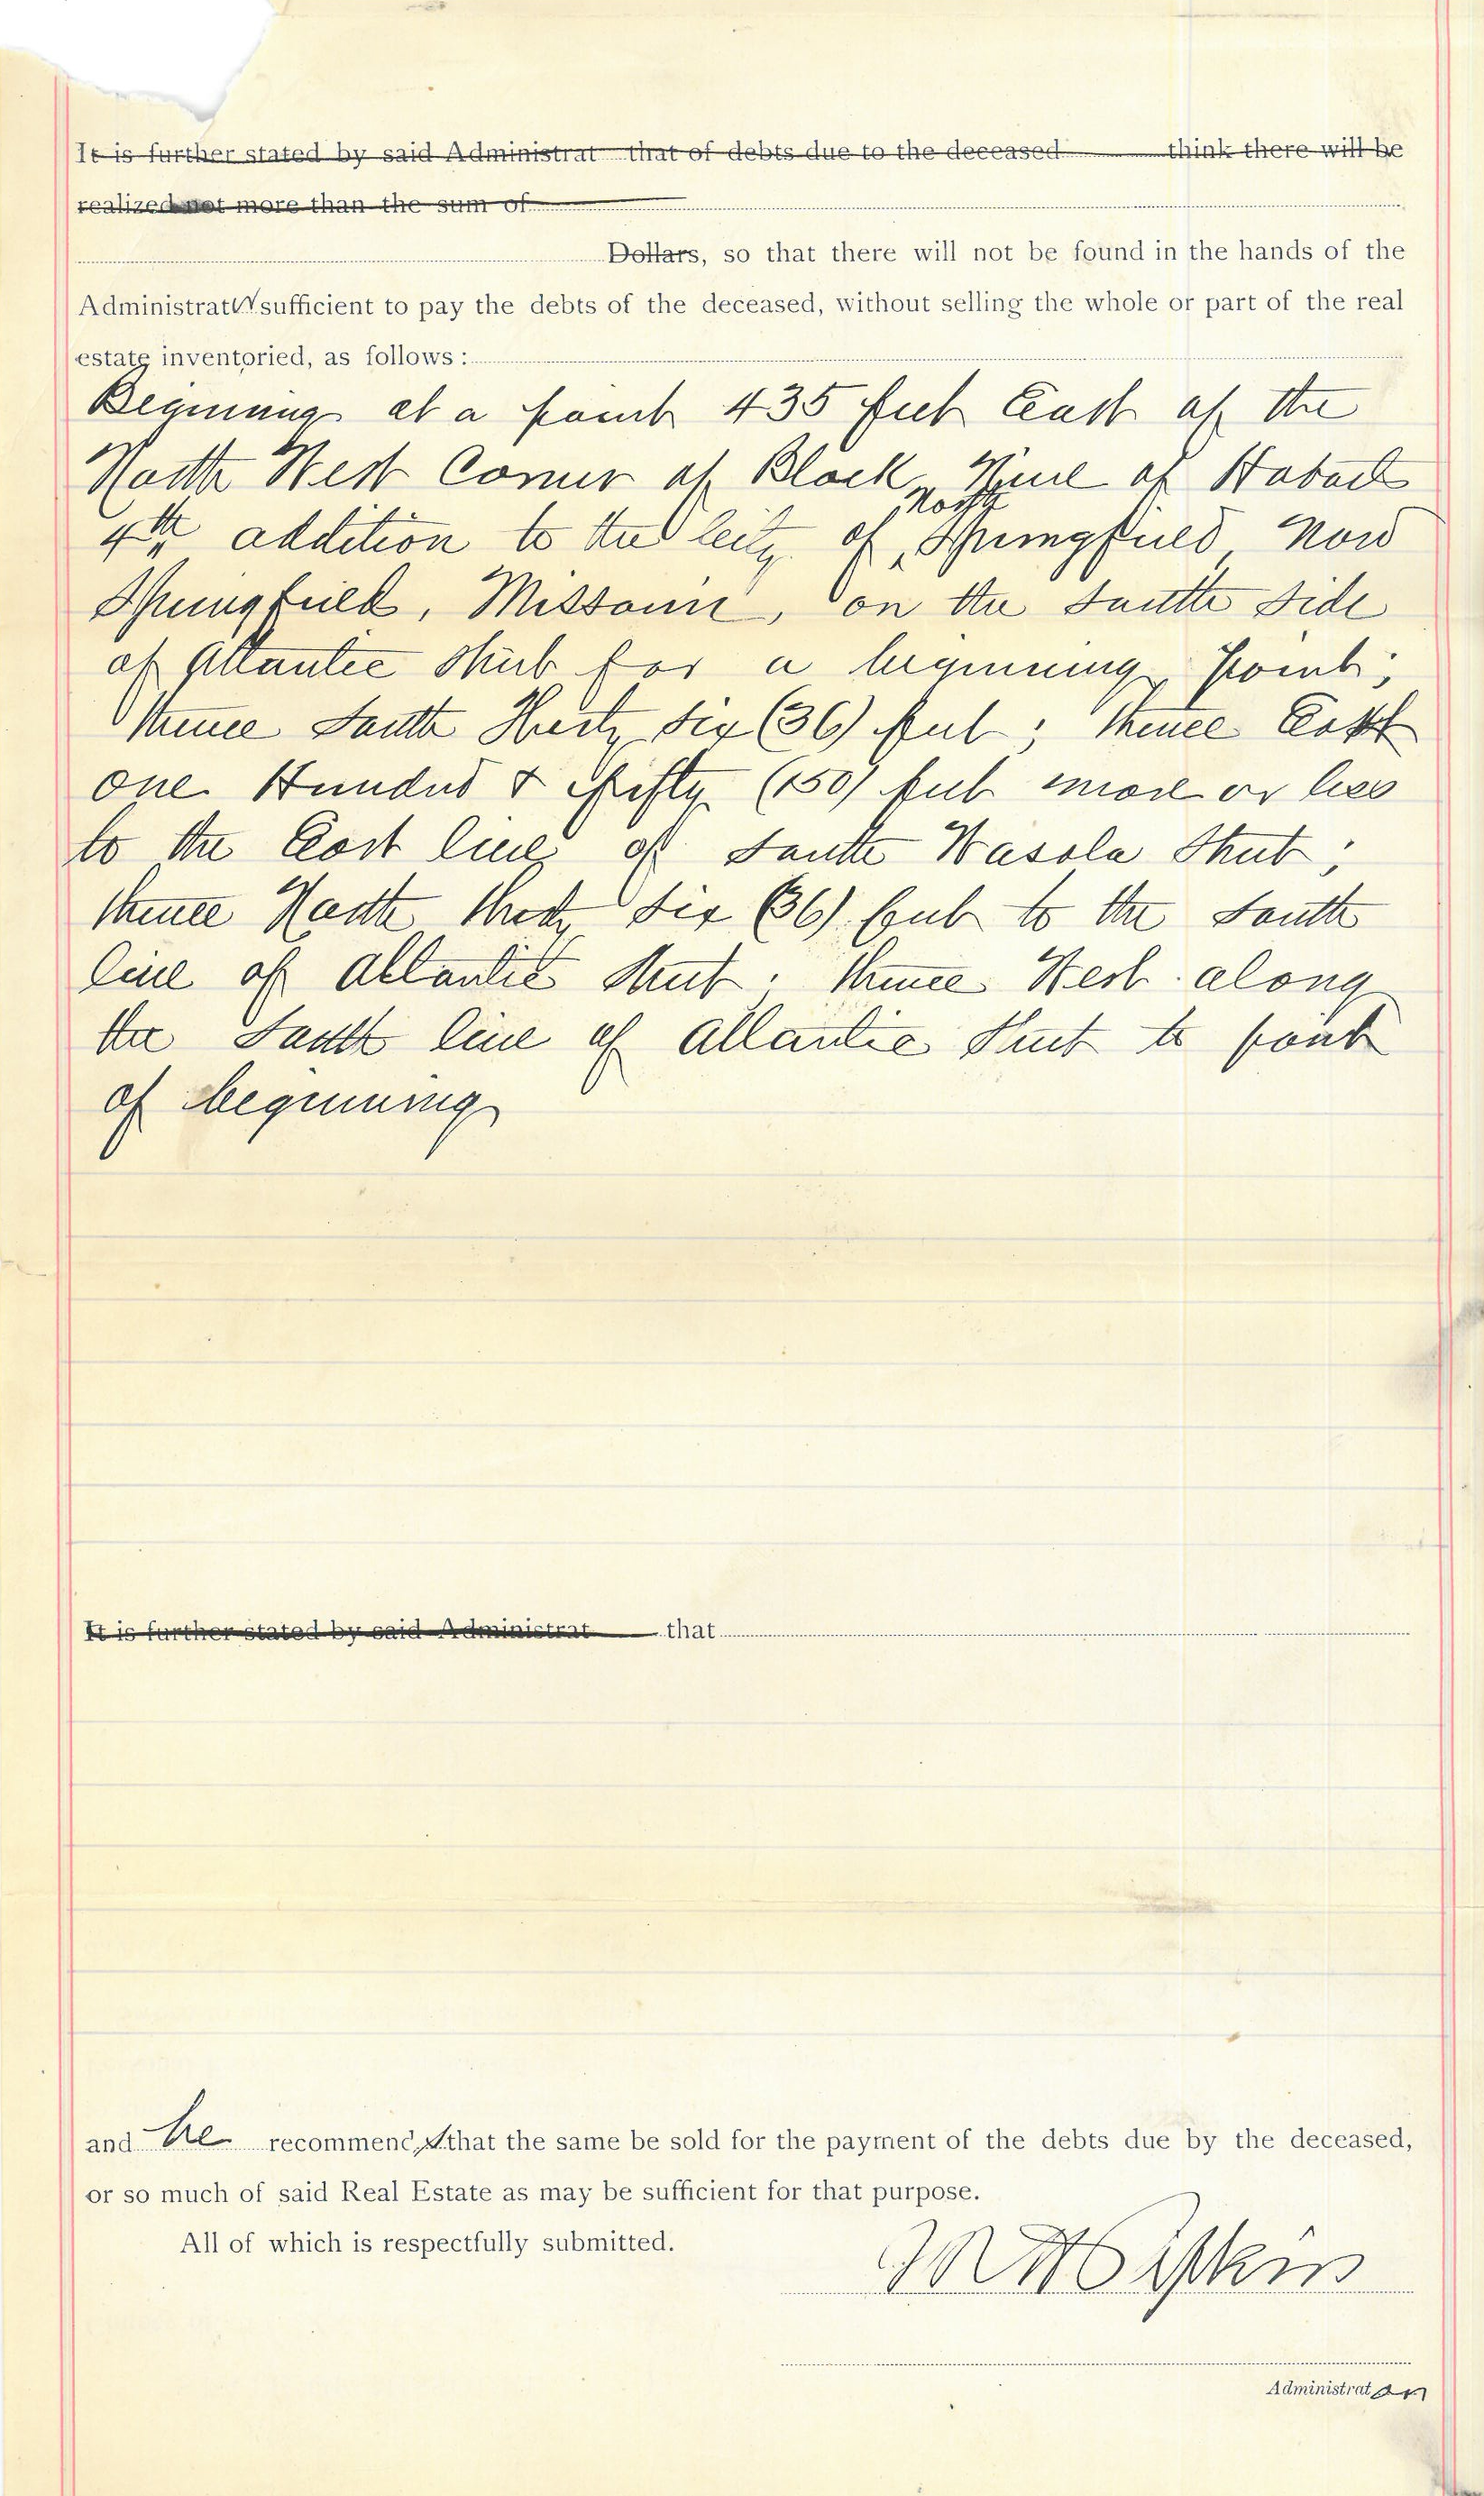 It is further stated by said Administrat that of debts due to the deceased think there will be
realized not more than the sum of
Dollars, so that there will not be found in the hands of the
Administrator sufficient to pay the debts of the deceased, without selling the whole or part of the real
estate inventoried, as follows:
Beginning at a point 435 feet East of the
North West Corner of Block Nine of
North
4th addition to the City of Springfield, Now
Springfield, Missouri, on the South Side
of Atlantic Street for a beginning point;
thence South thirty six (36) feet; thence East
one Hundred & fifty (150) feet more or less
to the East line of South Street;
thence North thirty six (36) feet to the South
line of Atlantic Street; thence West along
the South line of Atlantic Street to point
of beginning
It is further stated by said Administrat that
and he recommends that the same be sold for the payment of the debts due by the deceased,
or so much of said Real Estate as may be sufficient for that purpose.
All of which is respectfully submitted.
Administrator